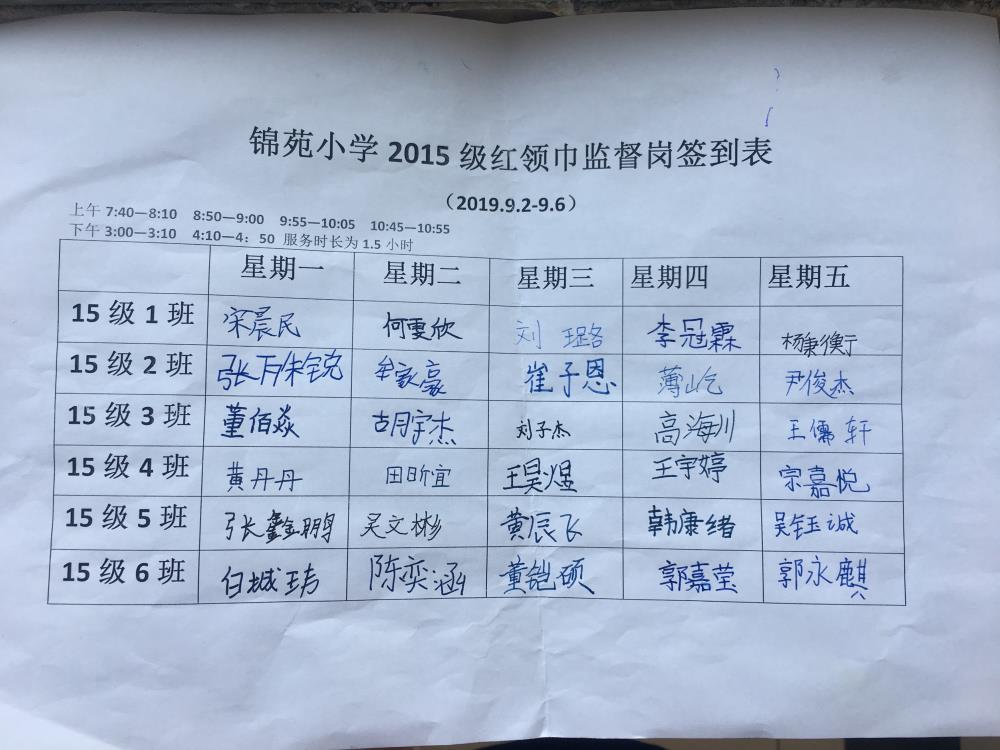 锦苑小学 2015 级红领巾监督岗签到表
（2019.9.2-9.6）
上午 7:40—8:10 8:50—9:00 9:55—10:05 10:45—10:55
下午 3:00—3:10 4:10—4：50 服务时长为 1.5 小时
星期一 星期二 星期三 星期四 星期五
15 级 1 班 宋晨民 何雯欣 刘 璐 李冠霖 杨康衡
15 级 2 班 张 朱锐 牟家豪 崔子恩 薄屹 尹俊杰
15 级 3 班 董佰焱 胡宇杰 刘子杰 高海川 王儒轩
15 级 4 班 黄丹丹 田昕宜 王昊煜 王宇婷 宗嘉悦
15 级 5 班 张鑫鹏 吴文彬 黄辰飞 韩康绪 吴钰诚
15 级 6 班 白城玮 陈奕涵 董铠硕 郭嘉莹 郭永麒